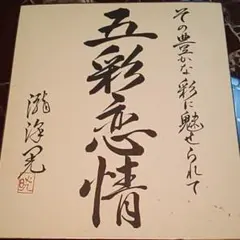 その豊かな彩に魅せられて
五彩恋情
瀧淨晃